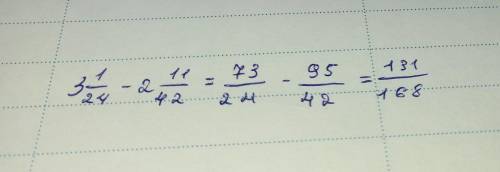 3 1/24 - 2 11/42 = 73/24 - 95/42 = 131/168